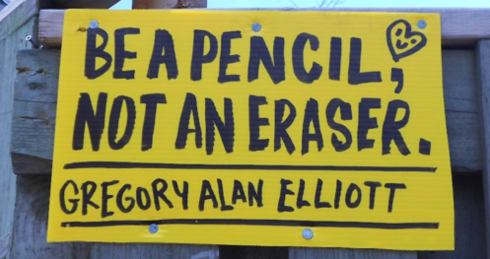 BE A PENCIL,
NOT AN ERASER.
GREGORY ALAN ELLIOTT